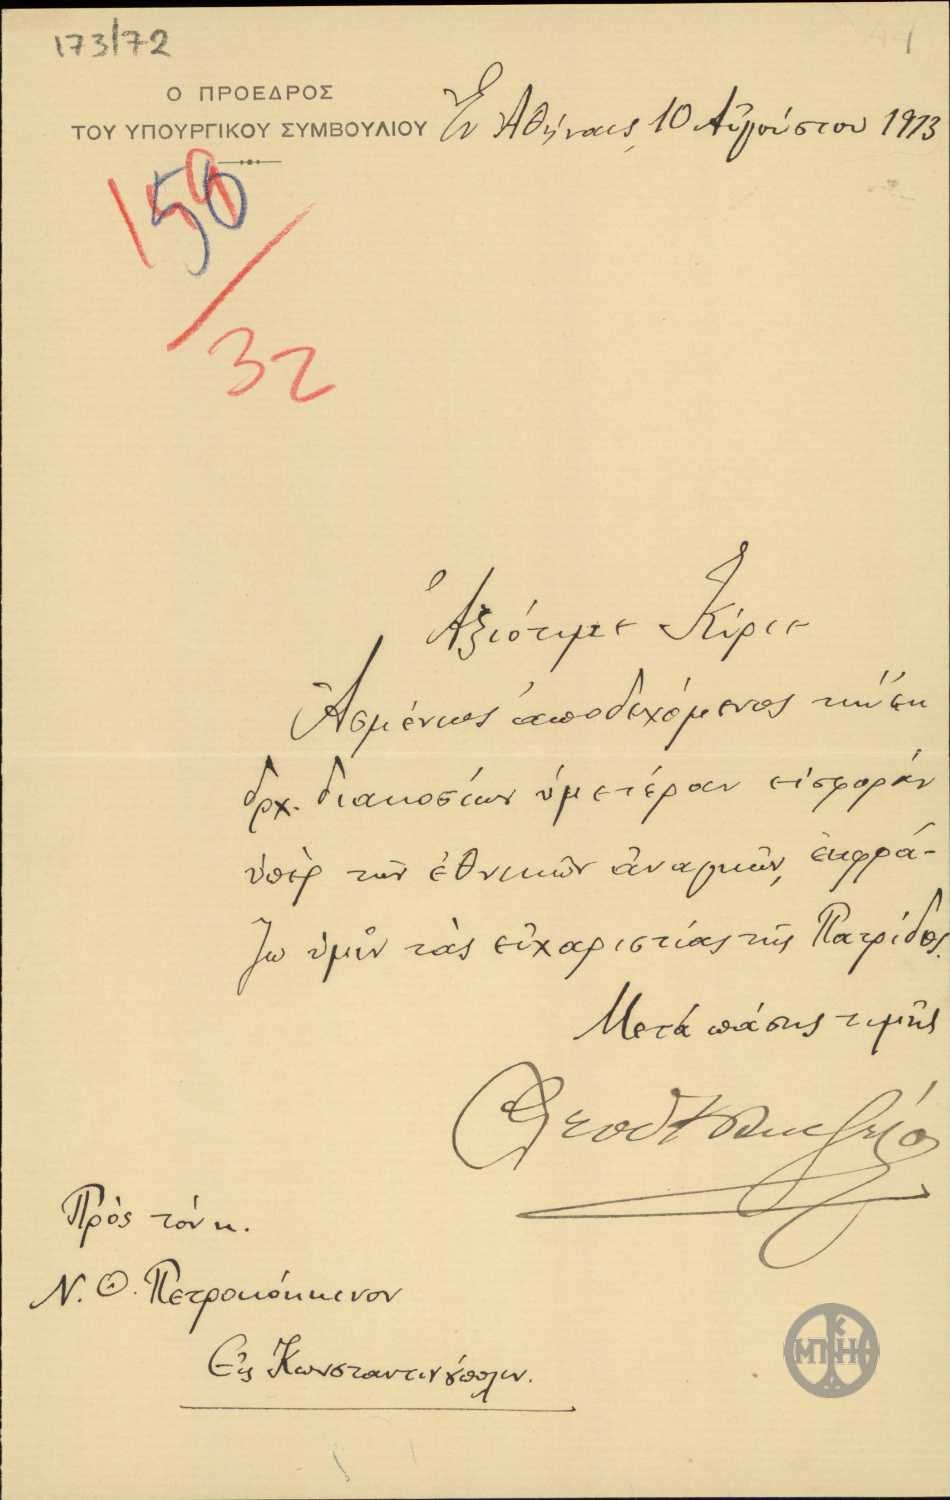 173/72
Ο ΠΡΟΕΔΡΟΣ
ΤΟΥ ΥΠΟΥΡΓΙΚΟΥ ΣΥΜΒΟΥΛΙΟΥ
Ἐν Ἀθήναις, 10 Αὐγούστου 1913
32
Ἀξιότιμε Κύριε
Ἀσμένως ἀποδεχόμενος τὴν ἐκ
δρχ. διακοσίων ὑμετέραν εἰσφορὰν
ὑπὲρ τῶν ἐθνικῶν ἀναγκῶν, ἐκφρά-
ζω ὑμῖν τὰς εὐχαριστίας τῆς Πατρίδος.
Μετὰ πάσης τιμῆς
Πρὸς τὸν κ.
Ν. Θ. Πετροκόκκινον
Εἰς Κωνσταντινούπολιν.
ΜΠΚΗ